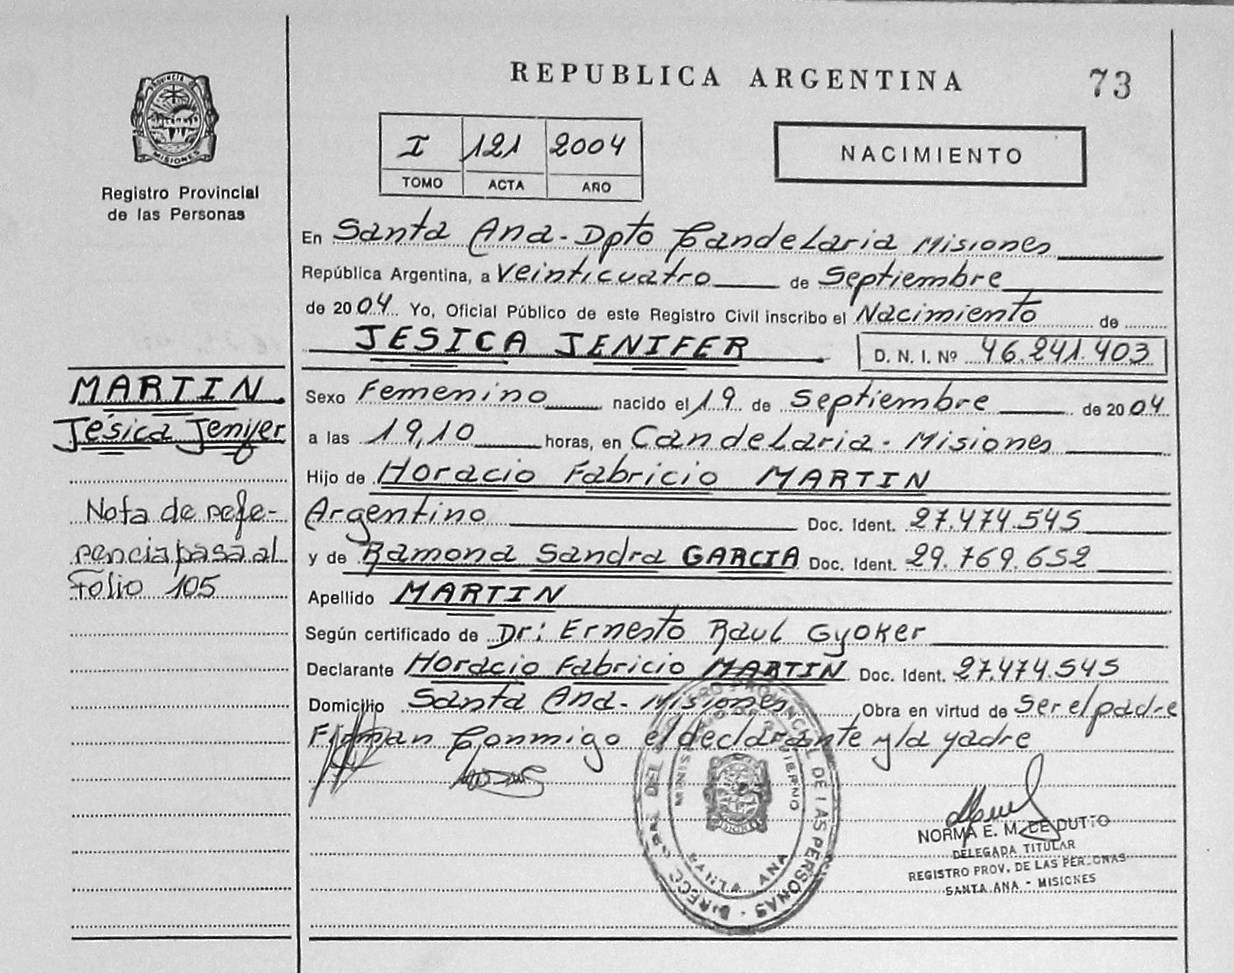 REPUBLICA ARGENTINA
73
PROVINCIA DE
MISIONES
Registro Provincial
de las Personas
I 121 2004
TOMO ACTA AÑO
NACIMIENTO
En Santa Ana - Dpto Candelaria Misiones
República Argentina, a Veinticuatro de Septiembre
de 2004 Yo, Oficial Público de este Registro Civil inscribo el Nacimiento de
JESICA JENIFER
D. N. I. Nº 46.241.403
MARTIN
Jésica Jenifer
Nota de refe-
rencia pasa al
Folio 105
Sexo Femenino nacido el 19 de Septiembre de 2004
a las 19,10 horas, en Candelaria - Misiones
Hijo de Horacio Fabricio MARTIN
Argentino Doc. Ident. 27.474.545
y de Ramona Sandra GARCIA Doc. Ident. 29.769.652
Apellido MARTIN
Según certificado de Dr: Ernesto Raul Gyoker
Declarante Horacio Fabricio MARTIN Doc. Ident. 27.474.545
Domicilio Santa Ana - Misiones Obra en virtud de Ser el padre
Firman Conmigo el declarante y la yadre
NORMA E. M. DE DUTTO
DELEGADA TITULAR
REGISTRO PROV. DE LAS PERSONAS
SANTA ANA - MISIONES
PROVINCIAL DE LAS PERSONAS
SANTA ANA